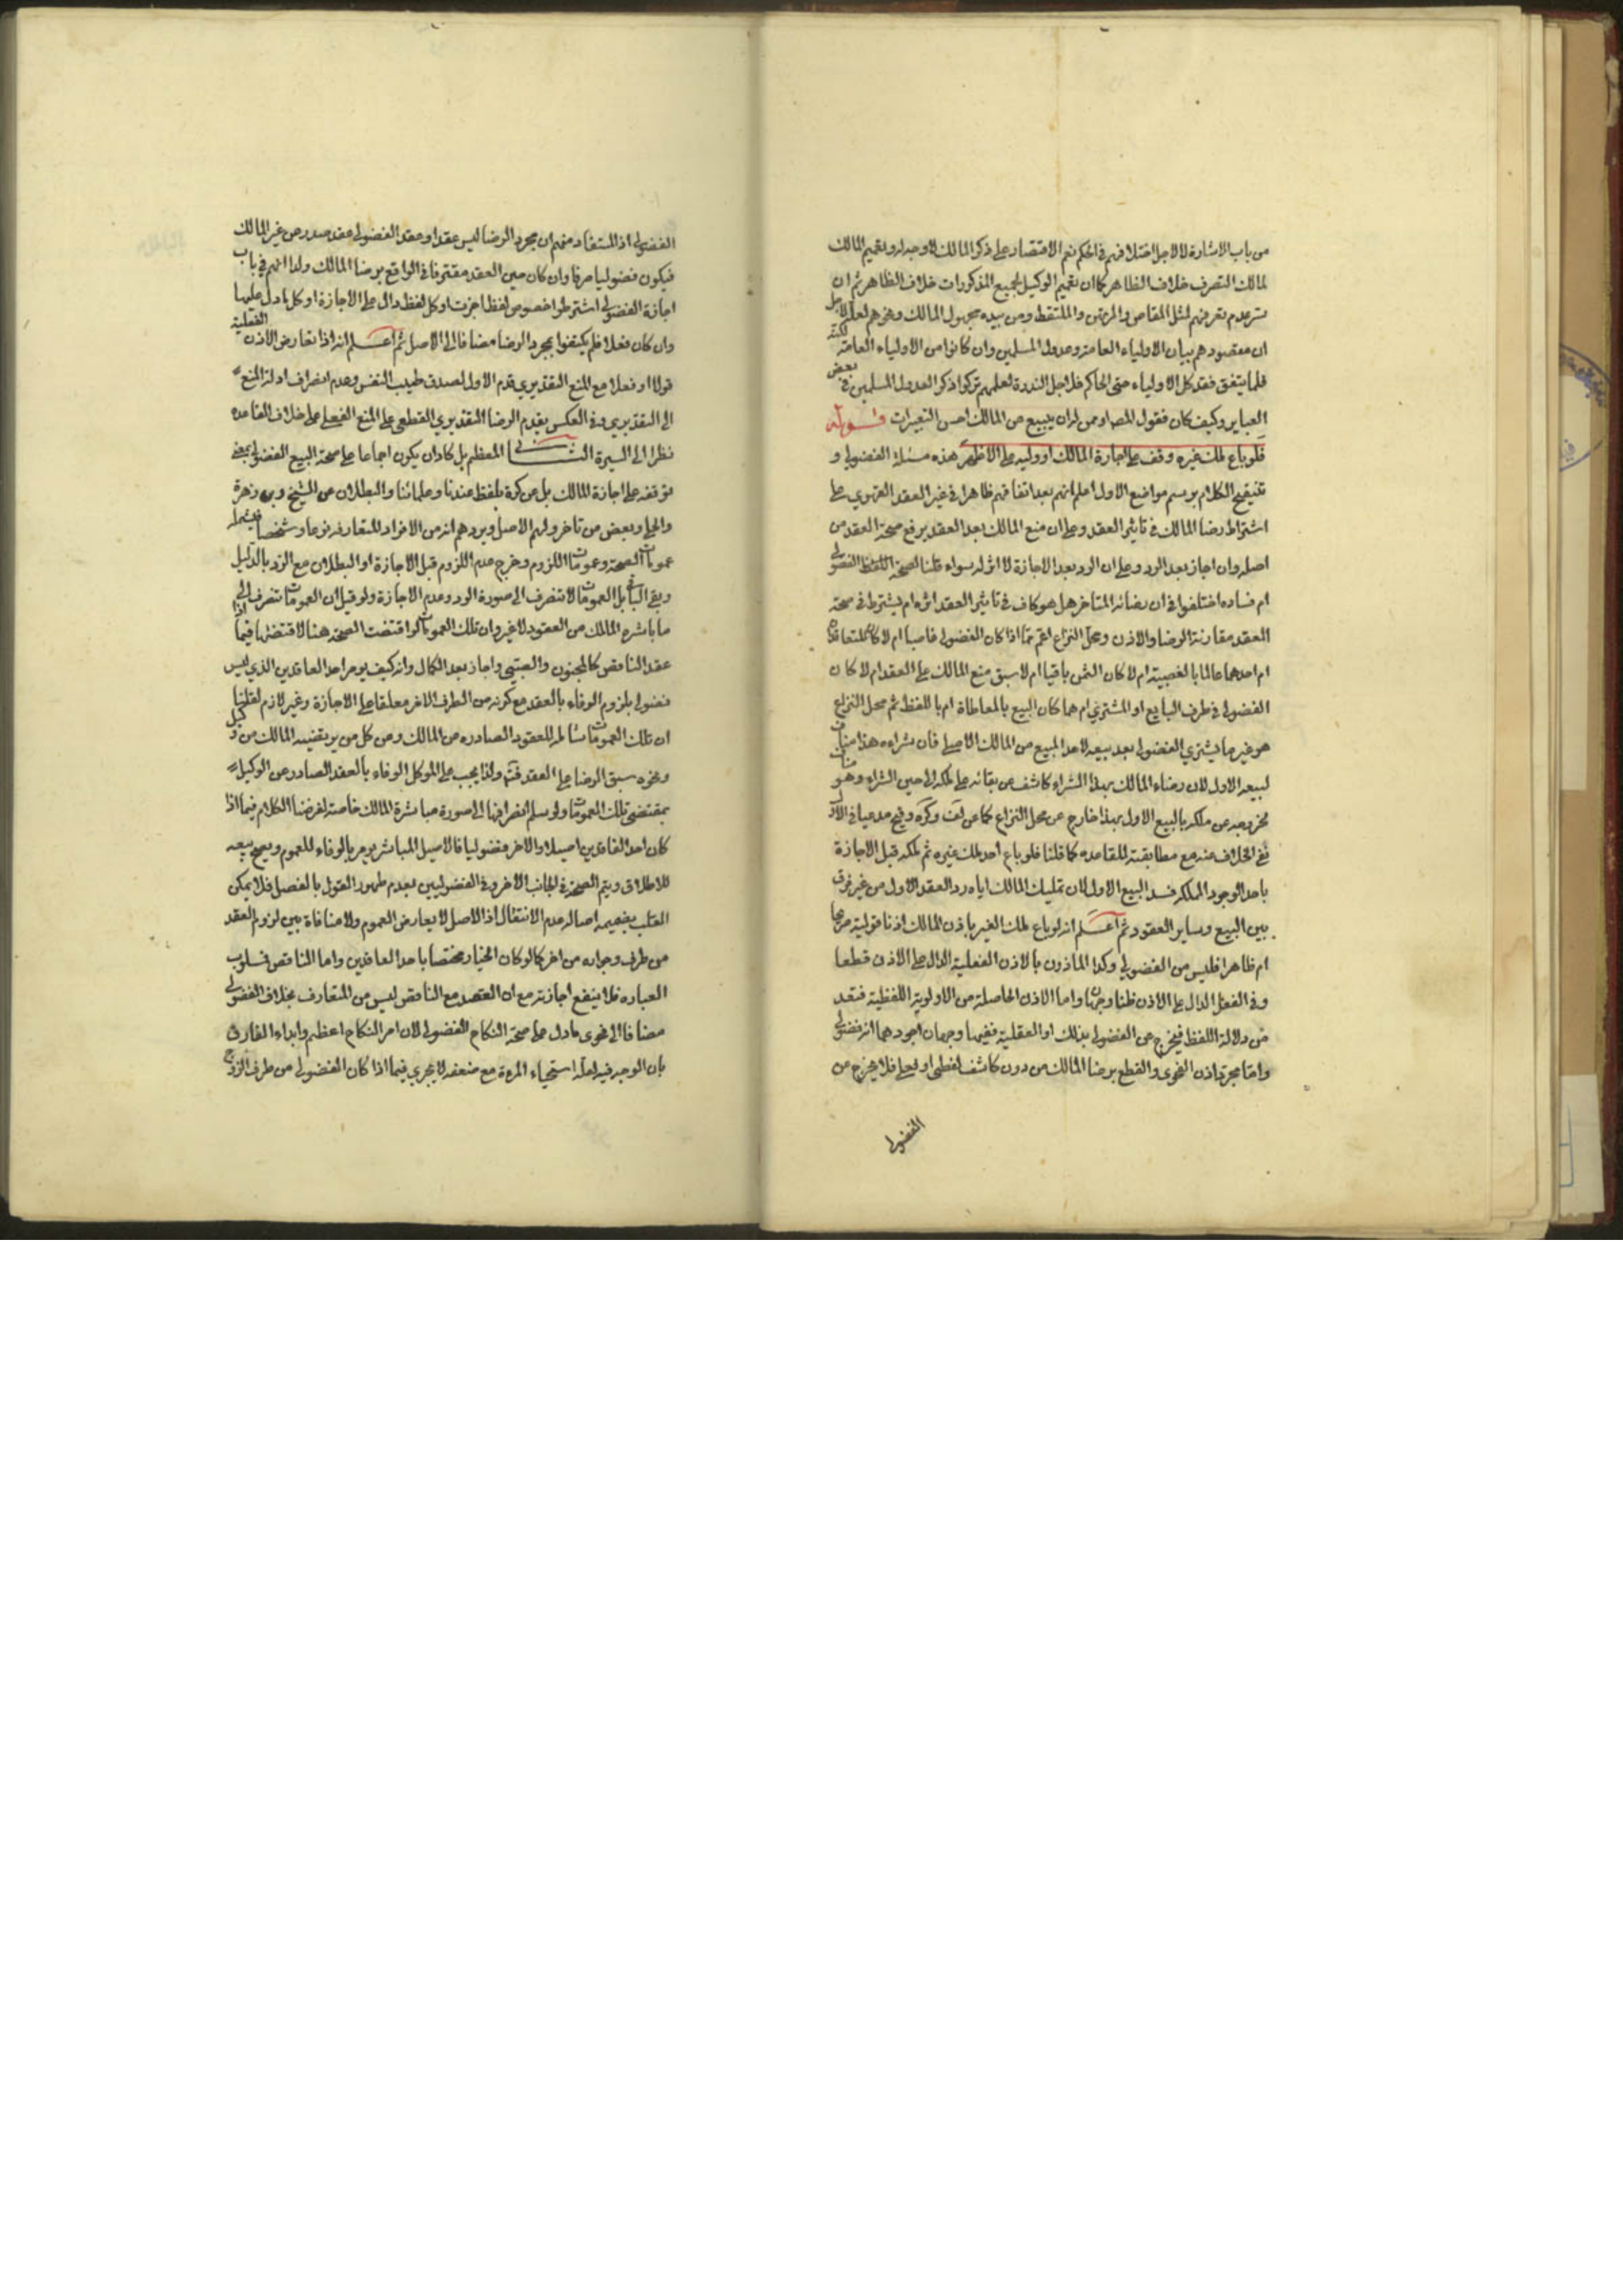 من باب الاشارة لا لاجل اختلافهم في الحكم نعم الاقتصار على ذكر المالك لا وجه له وتعميم المالك
لمالك التصرف خلاف الظاهر كما ان تعميم الوكيل لجميع المذكورات خلاف الظاهر ثم ان
عدم تعرضهم لمثل المقاص والمرتهن والملتقط ومن بيده مجهول المالك ونحوهم لعله لاجل
ان مقصودهم بيان الاولياء العامة وعدول المسلمين وان كانوا من الاولياء العامة لكنه
قلما يتفق فقد كل الاولياء حتى الحاكم فلاجل الندرة لعلهم تركوا ذكر العدول المسلمين في بعض
العباير وكيف كان فقول المصـ او ممن له ان يبيع من المالك احسن التعبيرات قوله
فلو باع ملك غيره وقف على اجازة المالك او وليه على الاظهر هذه مسئلة الفضولي و
تنقيح الكلام يرسم مواضع الاول اعلم انهم بعد اتفاقهم ظاهرا في غير العقد القهري على
اشتراط رضا المالك في تاثير العقد وعلى ان منع المالك بعد العقد يرفع صحة العقد من
اصله وان اجاز بعد الرد وعلى ان الرد بعد الاجازة لا اثر له سواء قلنا لصحة اللفظ الفضولي
ام فساده اختلفوا في ان رضائه المتاخر هل هو كاف في تاثير العقد اثره ام يشترط في صحة
العقد مقارنة الرضا والاذن ومحل النزاع اعم مما اذا كان الفضولي غاصبا ام لا كان المتعاقدان
ام احدهما عالما بالغصبية ام لا كان الثمن باقيا ام لا سبق منع المالك على العقد ام لا كان
الفضولي في طرف البايع او المشتري ام هما كان البيع بالمعاطاة ام باللفظ ثم محل النزاع
هو غير ما يشتري الفضولي بعد بيعه لاحد المبيع من المالك الاصلي فان شراءه هذا مناف
لبيعه الاول لان رضاء المالك بهذا الشراء كاشف عن بقائه على ملكه الى حين الشراء وهو مناف
لخروجه عن ملكه بالبيع الاول بهذا خارج عن محل النزاع كما عن لف وكره وفي مدعيا في الاول
نفي الخلاف عنه مع مطابقته للقاعدة كما قلنا فلو باع احد ملك غيره ثم ملكه قبل الاجازة
باحد الوجوه المملكه فسد البيع الاول لان تمليك المالك اياه رد العقد الاول من غير فرق
بين البيع وساير العقود ثم اعلم انه لو باع ملك الغير باذن المالك اذنا قولية صريحا
ام ظاهرا فليس من الفضولي وكذا الماذون بالاذن الفعلية الدال على الاذن قطعا
وفي الفعل الدال على الاذن ظنا وجهان واما الاذن الحاصلة من الاولوية اللفظية فتعد
من دلالة اللفظ فيخرج عن الفضولي بذلك او العقلية ففيها وجهان اجودهما انه فضولي
واما مجرد اذن الفحوى والقطع برضا المالك من دون كاشف لفظي او فعلي فلا يخرج عن
الفضولي
الفضولي اذ المستفاد منهم ان مجرد الرضا ليس عقدا وعقد الفضولي عقد صدر من غير المالك
فيكون فضوليا صرفا وان كان حين العقد مقترنا في الواقع برضا المالك ولذا انهم في باب
اجازة الفضولي اشترطوا خصوص لفظ اجزت او كل لفظ دال على الاجازة او كل ما دل عليها
وان كان فعلا فلم يكتفوا بمجرد الرضا مضافا الى الاصل ثم اعلم انه اذا تعارض الاذن الفعلية
قولا او فعلا مع المنع التقديري قدم الاول لصدق طيب النفس وعدم انصراف ادلة المنع
الى التقديري وفي العكس يقدم الرضا التقديري القطعي على المنع الفعلي على خلاف القاعدة
نظرا الى السيرة الثاني المعظم بل كاد ان يكون اجماعا على صحة البيع الفضولي بمعنى
توقفه على اجازة المالك بل عن كرة بلفظ عندنا وعلمائنا والبطلان عن الشيخ وبن زهرة
والحلي وبعض من تاخر ولهم الاصل ويردهم انه من الافراد المتعارفة نوعا وشخصا فيشمله
عمومات الصحة وعمومات اللزوم وخرج عدم اللزوم قبل الاجازة او البطلان مع الرد بالدليل
وبقي الباقي بل العمومات لا تنصرف الى صورة الرد وعدم الاجازة ولو قيل ان العمومات تنصرف الى
ما باشره المالك من العقود لا غير وان تلك العمومات لو اقتضت الصحة هنا لاقتضتها فيما اذا
عقد الناقص كالمجنون والصبي واجاز بعد الكمال وانه كيف يومر احد العاقدين الذي ليس
فضولي بلزوم الوفاء بالعقد مع كونه من الطرف الاخر معلقا على الاجازة وغير لازم لقلنا
ان تلك العمومات شاملة للعقود الصادره من المالك ومن كل من يرتضيه المالك من وكيل
ونحوه سبق الرضا على العقد فتم ولذا يجب على الموكل الوفاء بالعقد الصادر من الوكيل
بمقتضى تلك العمومات ولو سلم انصرافها الى صورة مباشرة المالك خاصة لفرضنا الكلام فيما اذا
كان احد العاقدين اصيلا والاخر فضوليا فالاصيل المباشر يومر بالوفاء للعموم ويصح بيعه
للاطلاق ويتم الصحة في الجانب الاخر وفي الفضوليين بعدم ظهور القول بالفصل فلا يمكن
القلب بضميمة اصالة عدم الانتقال اذ الاصل لا يعارض العموم ولا منافاة بين لزوم العقد
من طرف وجوازه من اخر كما لو كان الخيار مختصا باحد العاقدين واما الناقص فسلوب
العباره فلا ينفع اجازته مع ان العقد مع الناقص ليس من المتعارف بخلاف الفضولي
مضافا الى فحوى ما دل على صحة النكاح الفضولي لان امر النكاح اعظم وابداء الفارق
بان الوجه فيه لعله استحياء المرءة مع ضعفه لا يجري فيما اذا كان الفضولي من طرف الزوج